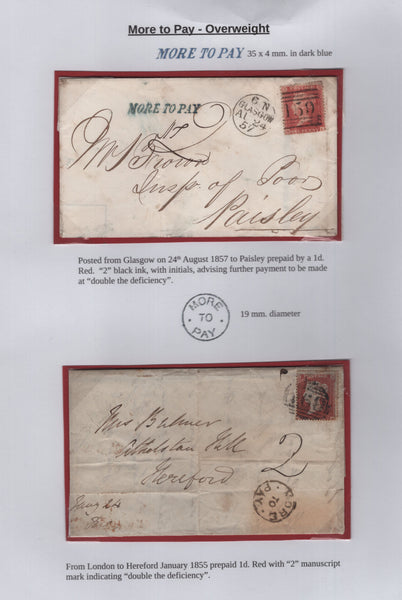 More to Pay - Overweight
MORE TO PAY 35 x 4 mm. in dark blue
MORE TO PAY
G.N
GLASGOW
AU 24
57
159
2
Mr Brown
Insp. of Poor
Paisley
Posted from Glasgow on 24th August 1857 to Paisley prepaid by a 1d.
Red. “2” black ink, with initials, advising further payment to be made
at “double the deficiency”.
MORE
TO
PAY
19 mm. diameter
Mrs Bulmer
Hereford
2
MORE
TO
PAY
From London to Hereford January 1855 prepaid 1d. Red with “2” manuscript
mark indicating “double the deficiency”.